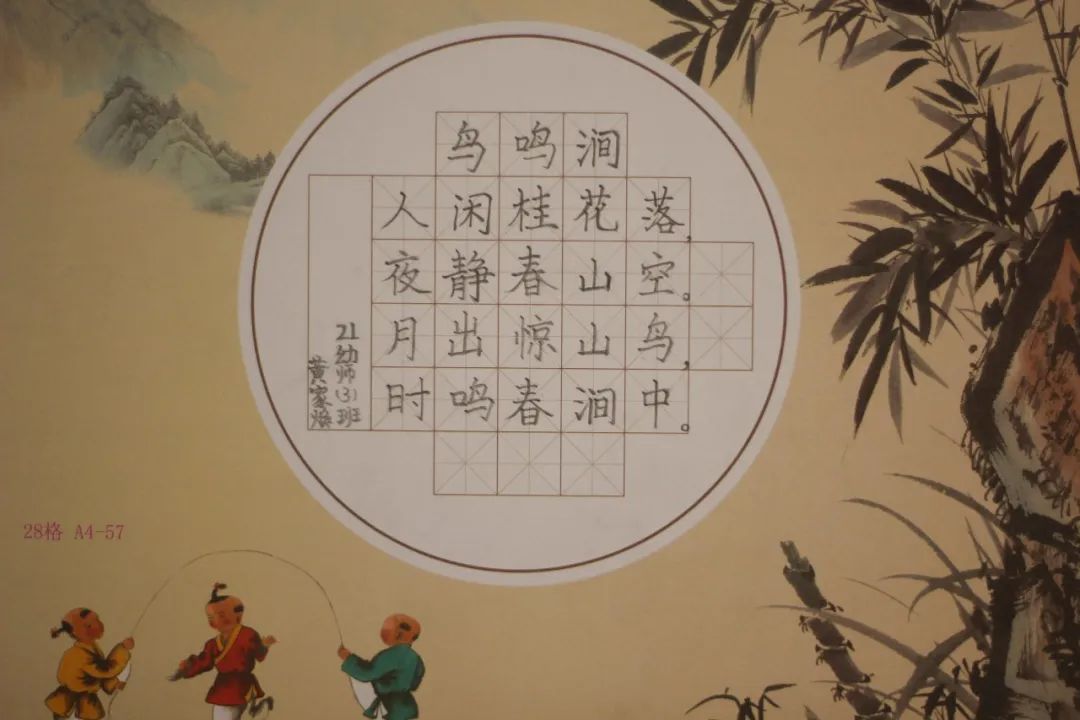 鸟鸣涧
人闲桂花落,
夜静春山空。
月出惊山鸟,
时鸣春涧中。
21幼师(3)班
黄家焕
28格 A4-57